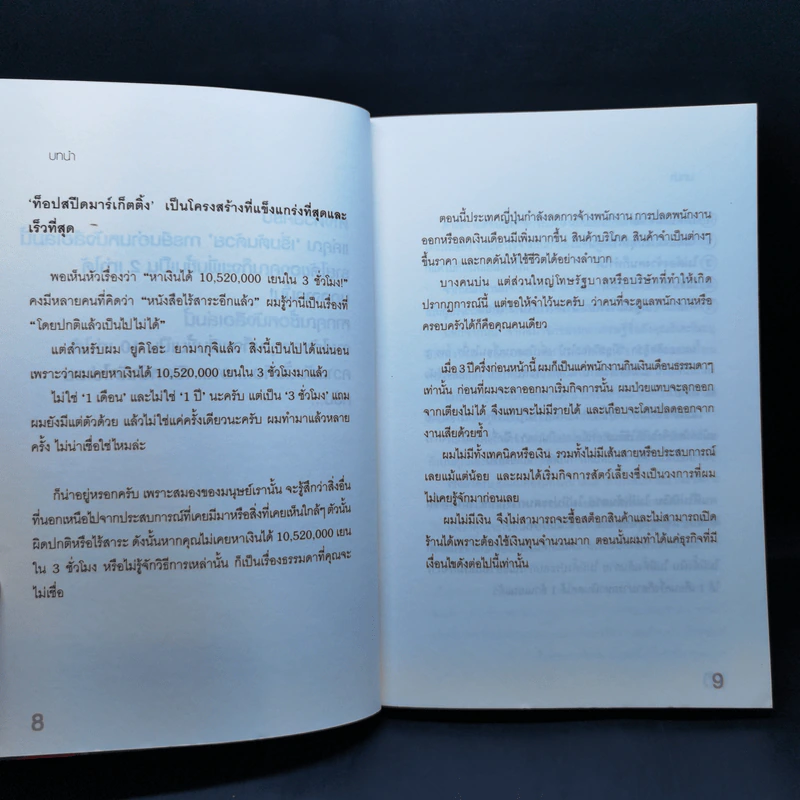 บทนำ
'ท็อปสปีดมาร์เก็ตติ้ง' เป็นโครงสร้างที่แข็งแกร่งที่สุดและ
เร็วที่สุด
พอเห็นหัวเรื่องว่า "หาเงินได้ 10,520,000 เยนใน 3 ชั่วโมง!"
คงมีหลายคนที่คิดว่า "หนังสือไร้สาระอีกแล้ว" ผมรู้ว่านี่เป็นเรื่องที่
"โดยปกติแล้วเป็นไปไม่ได้"
แต่สำหรับผม ยูคิโอะ ยามากุจิแล้ว สิ่งนี้เป็นไปได้แน่นอน
เพราะว่าผมเคยหาเงินได้ 10,520,000 เยนใน 3 ชั่วโมงมาแล้ว
ไม่ใช่ '1 เดือน' และไม่ใช่ '1 ปี' นะครับ แต่เป็น '3 ชั่วโมง' แถม
ผมยังมีแต่ตัวด้วย แล้วไม่ใช่แค่ครั้งเดียวนะครับ ผมทำมาแล้วหลาย
ครั้ง ไม่น่าเชื่อใช่ไหมล่ะ
ก็น่าอยู่หรอกครับ เพราะสมองของมนุษย์เรานั้น จะรู้สึกว่าสิ่งอื่น
ที่นอกเหนือไปจากประสบการณ์ที่เคยมีมาหรือสิ่งที่เคยเห็นใกล้ๆ ตัวนั้น
ผิดปกติหรือไร้สาระ ดังนั้นหากคุณไม่เคยหาเงินได้ 10,520,000 เยน
ใน 3 ชั่วโมง หรือไม่รู้จักวิธีการเหล่านั้น ก็เป็นเรื่องธรรมดาที่คุณจะ
ไม่เชื่อ
8
ตอนนี้ประเทศญี่ปุ่นกำลังลดการจ้างพนักงาน การปลดพนักงาน
ออกหรือลดเงินเดือนมีเพิ่มมากขึ้น สินค้าบริโภค สินค้าจำเป็นต่างๆ
ขึ้นราคา และกดดันให้ใช้ชีวิตได้อย่างลำบาก
บางคนบ่น แต่ส่วนใหญ่โทษรัฐบาลหรือบริษัทที่ทำให้เกิด
ปรากฏการณ์นี้ แต่ขอให้จำไว้นะครับ ว่าคนที่จะดูแลพนักงานหรือ
ครอบครัวได้ก็คือคุณคนเดียว
เมื่อ 3 ปีครึ่งก่อนหน้านี้ ผมก็เป็นแค่พนักงานกินเงินเดือนธรรมดาๆ
เท่านั้น ก่อนที่ผมจะลาออกมาเริ่มกิจการนั้น ผมป่วยแทบจะลุกออก
จากเตียงไม่ได้ จึงแทบจะไม่มีรายได้ และเกือบจะโดนปลดออกจาก
งานเสียด้วยซ้ำ
ผมไม่มีทั้งเทคนิคหรือเงิน รวมทั้งไม่มีเส้นสายหรือประสบการณ์
เลยแม้แต่น้อย และผมได้เริ่มกิจการสัตว์เลี้ยงซึ่งเป็นวงการที่ผม
ไม่เคยรู้จักมาก่อนเลย
ผมไม่มีเงิน จึงไม่สามารถจะซื้อสต็อกสินค้าและไม่สามารถเปิด
ร้านได้เพราะต้องใช้เงินทุนจำนวนมาก ตอนนั้นผมทำได้แค่ธุรกิจที่มี
เงื่อนไขดังต่อไปนี้เท่านั้น
9